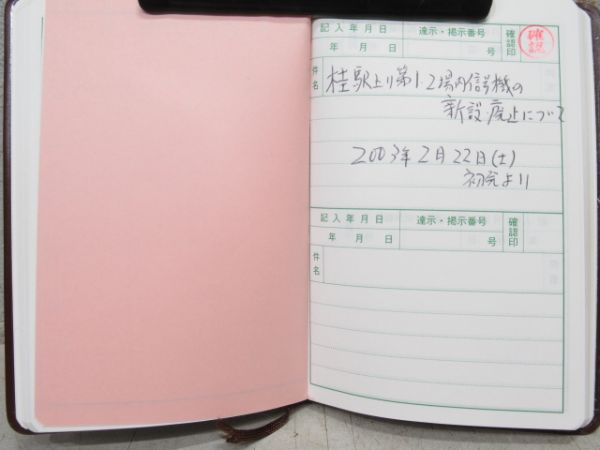 記入年月日 達示・掲示番号 確認印 確認
年 月 日 号
件名 桂駅上り第1.2場内信号機の
新設.廃止について
2003年2月22日(土)
初発より
記入年月日 達示・掲示番号 確認印
年 月 日 号
件名